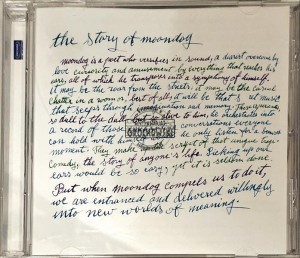 the story of moondog
moondog is a poet who versifies in sound, a diarist overcome by
love curiosity and amusement by everything that reaches his
ears, all of which he transposes into a symphony of himself.
it may be the roar from the streets, it may be the casual
chatter in a room or, best of all, it will be that music
that seeps through imagination and memory.
so dull to the dull, but so alive to him, he industriously into
a record of those conversations everyone
can hold with himself if he only listens for a
moment. They make the script of that unique tragi-
comedy, the story of anyone's life. Picking up our
ears would be so easy, yet it is seldom done.
But when moondog compels us to do it,
we are entranced and delivered willingly
into new worlds of meaning.